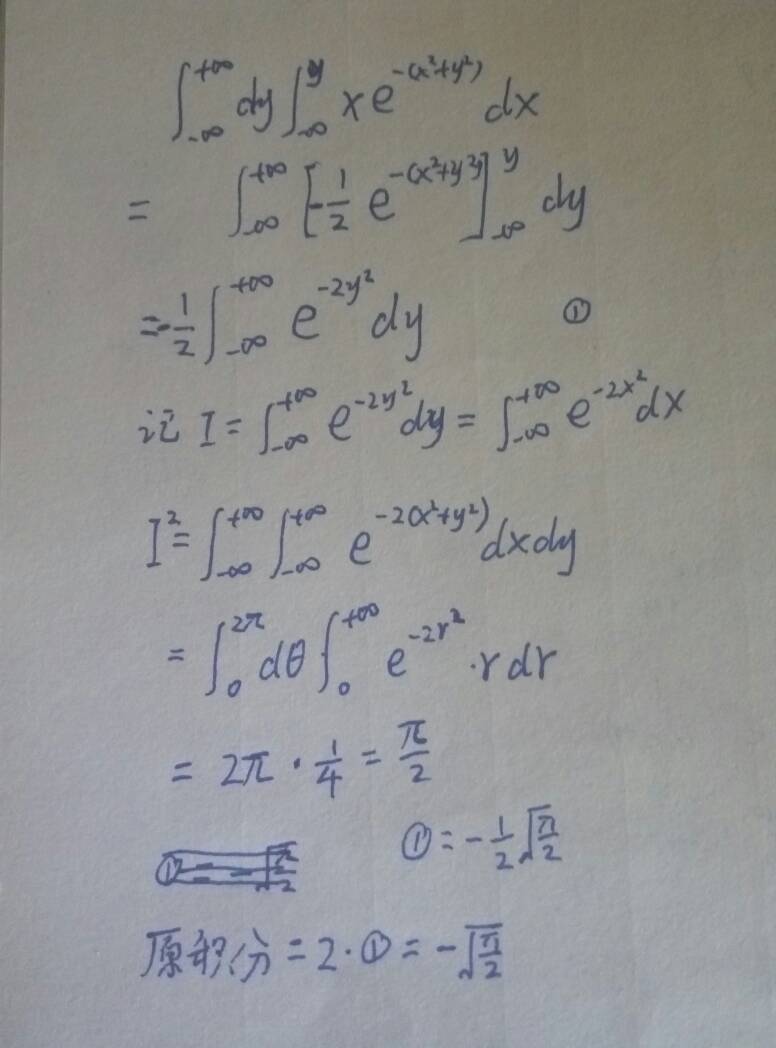 ∫_{-∞}^{+∞} dy ∫_{-∞}^{y} x e^{-(x²+y²)} dx
= ∫_{-∞}^{+∞} [-1/2 e^{-(x²+y²)}]_{-∞}^{y} dy
= -1/2 ∫_{-∞}^{+∞} e^{-2y²} dy ①
记 I = ∫_{-∞}^{+∞} e^{-2y²} dy = ∫_{-∞}^{+∞} e^{-2x²} dx
I² = ∫_{-∞}^{+∞} ∫_{-∞}^{+∞} e^{-2(x²+y²)} dxdy
= ∫_{0}^{2π} dθ ∫_{0}^{+∞} e^{-2r²} · r dr
= 2π · 1/4 = π/2
① = -1/2 √(π/2)
原积分 = 2 · ① = -√(π/2)